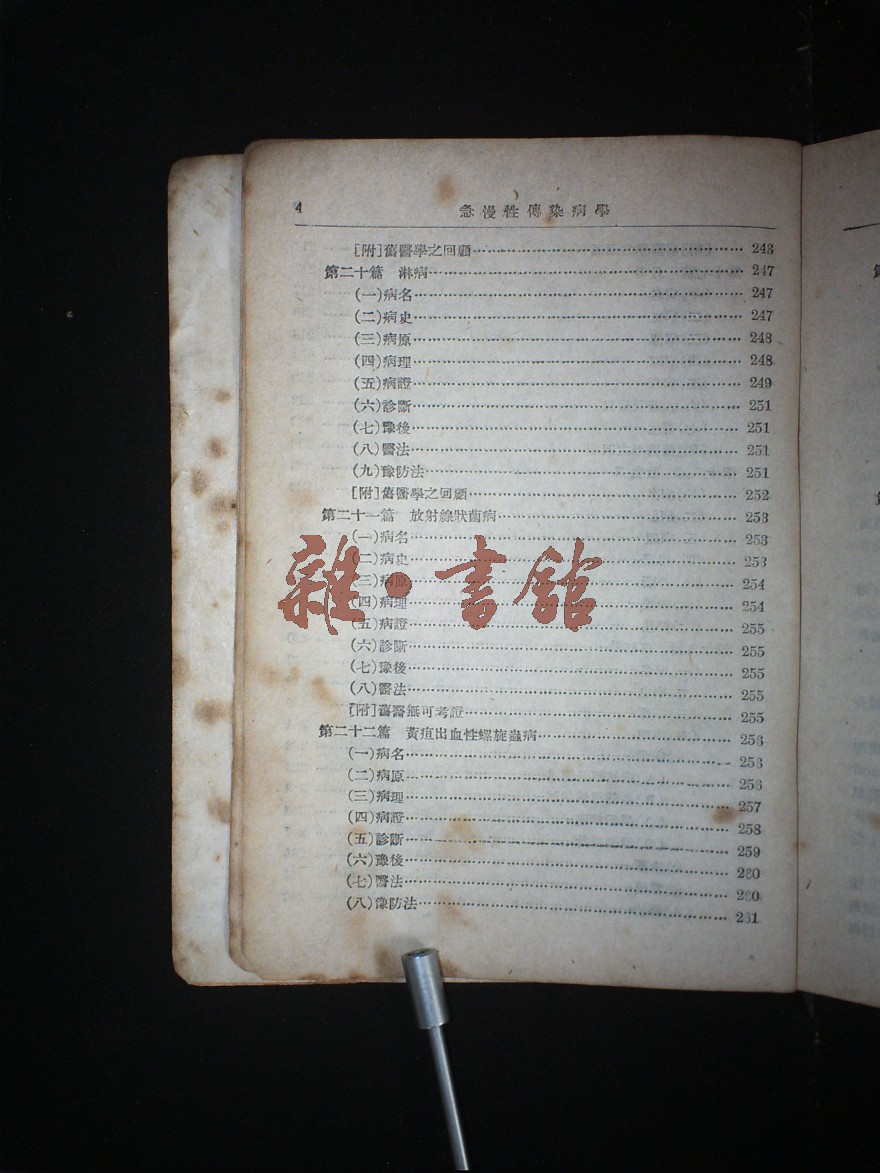 4 急慢性傳染病學
[附]舊醫學之回顧 243
第二十篇 淋病 247
(一)病名 247
(二)病史 247
(三)病原 248
(四)病理 248
(五)病證 249
(六)診斷 251
(七)豫後 251
(八)醫法 251
(九)豫防法 251
[附]舊醫學之回顧 252
第二十一篇 放射線狀菌病 253
(一)病名 253
(二)病史 253
(三)病原 254
(四)病理 254
(五)病證 255
(六)診斷 255
(七)豫後 255
(八)醫法 255
[附]舊醫無可考證 255
第二十二篇 黃疸出血性螺旋蟲病 256
(一)病名 256
(二)病原 256
(三)病理 257
(四)病證 258
(五)診斷 259
(六)豫後 260
(七)醫法 260
(八)豫防法 261
雜·書館